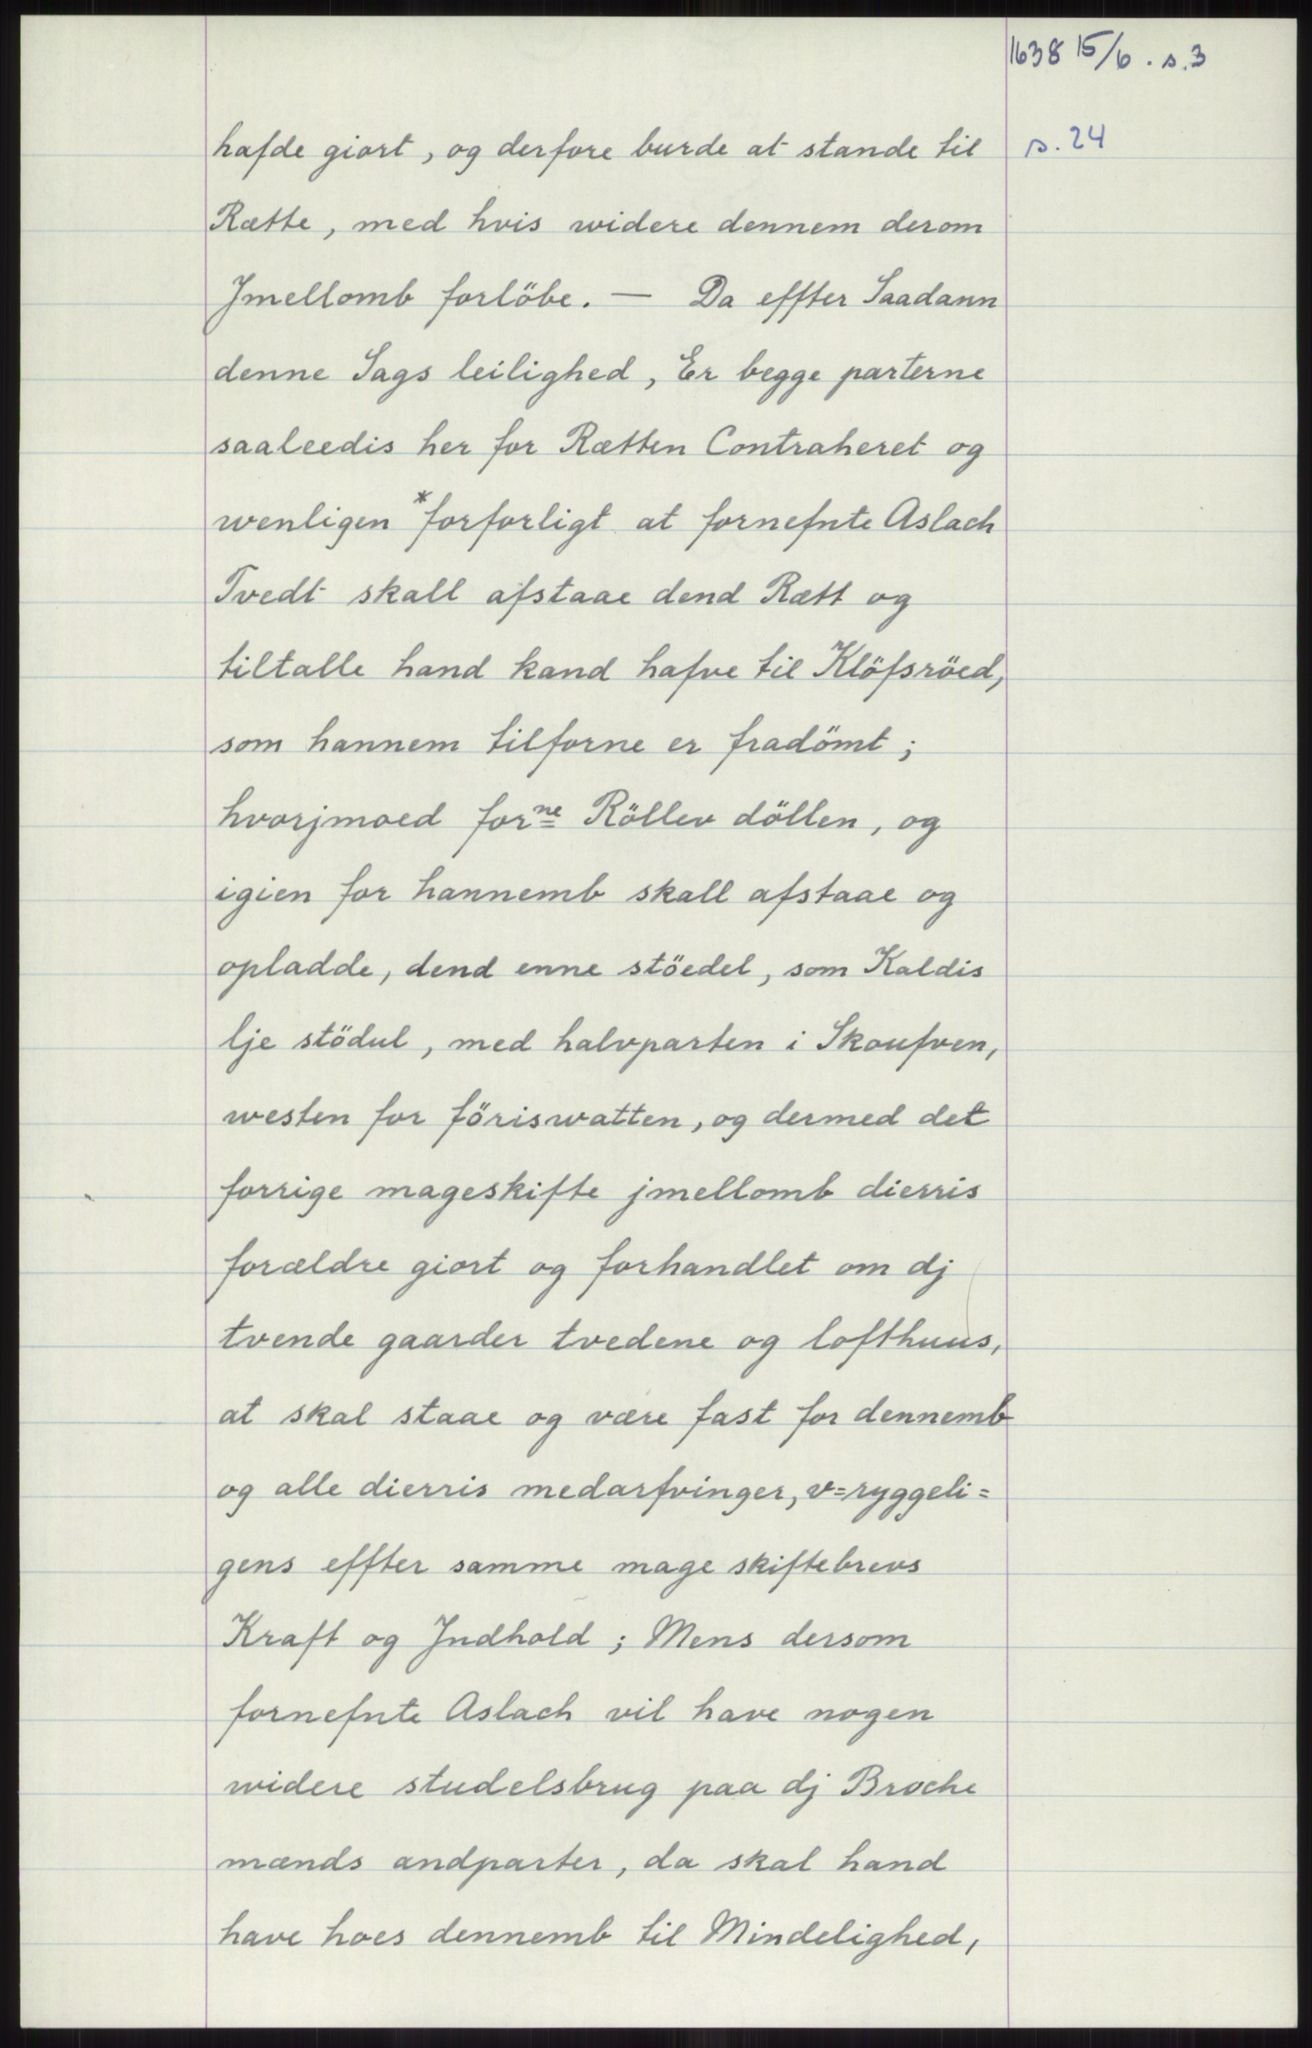 1638 15/6 . s.3
hafde giort, og derfore burde at stande til
s. 24
Rætte, med hvis widere dennem derom
Jmellomb forlöbe. — Da effter Saadann
denne Sags leilighed, Er begge parterne
saaleedis her for Rætten Contraheret og
wenligen *forforligt at fornefnte Aslach
Tvedt skall afstaae dend Rætt og
tiltalle hand kand hafve til Klöfsröed,
som hannem tilforne er fradömt ;
hvorjmoed forne Röllev döllen, og
igien for hannemb skall afstaae og
opladde, dend enne stöedel, som Kaldis
lje stödul, med halvparten i Skoufven,
westen for föriswatten, og dermed det
forrige mageskifte jmellomb dierris
forældre giort og forhandlet om dj
tvende gaarder tvedene og lofthuus,
at skal staae og være fast for dennemb
og alle dierris medarfvinger, v=ryggeli=
gens effter samme mage skiftebrevs
Kraft og Jndhold ; Mens dersom
fornefnte Aslach vil have nogen
widere studelsbrug paa dj Broche
mænds andparter, da skal hand
have hoes dennemb til Mindelighed,